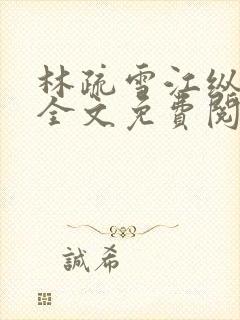 林疏雪江纵
全文免費閱
誠希